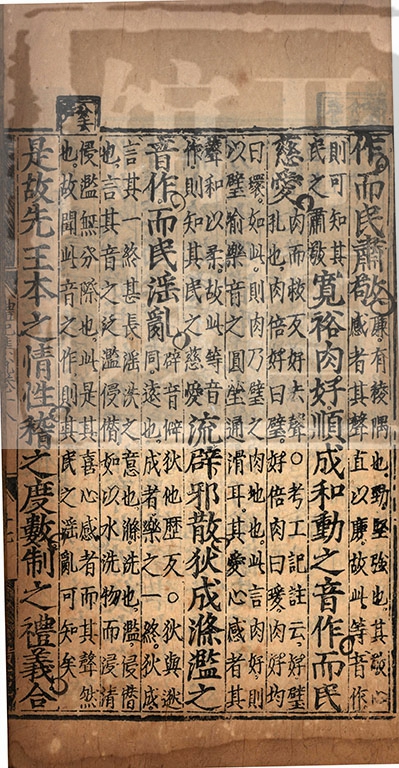 作而民肅敬廉有稜隅也勁堅強也其敬心
感者其聲直以廉故此等音作
則可知其
民之肅敬寬裕肉好順成和動之音作而民
慈愛肉而救反好去聲○考工記註云好璧
孔也肉倍好曰璧好倍肉曰瑗肉好均
曰環如此則肉乃璧之肉地也此言肉好則
以璧喻樂音之圓瑩通滑耳其愛心感者其
聲和以柔故此等音
作則知其民之慈愛流辟邪散狄成滌濫之
音作而民淫亂辟音僻狄他歷反○狄與逖
同遠也成者樂之一終狄成
言其一終甚長淫泆之意也滌洗也濫侵僭
也言其音之泛濫侵僭如以水洗物而浸漬
侵濫無分際也此是其喜心感者而其聲然
也故聞此音之作則其民之淫亂可知矣
是故先王本之情性稽之度數制之禮義合